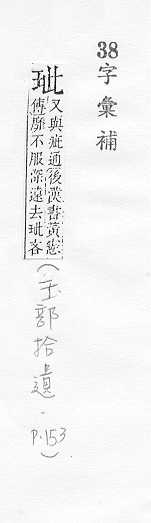 38字彙補
玼
又與疵通後漢書黃憲
傳廓不服深遠去玼吝
(玉部拾遺.P.153)